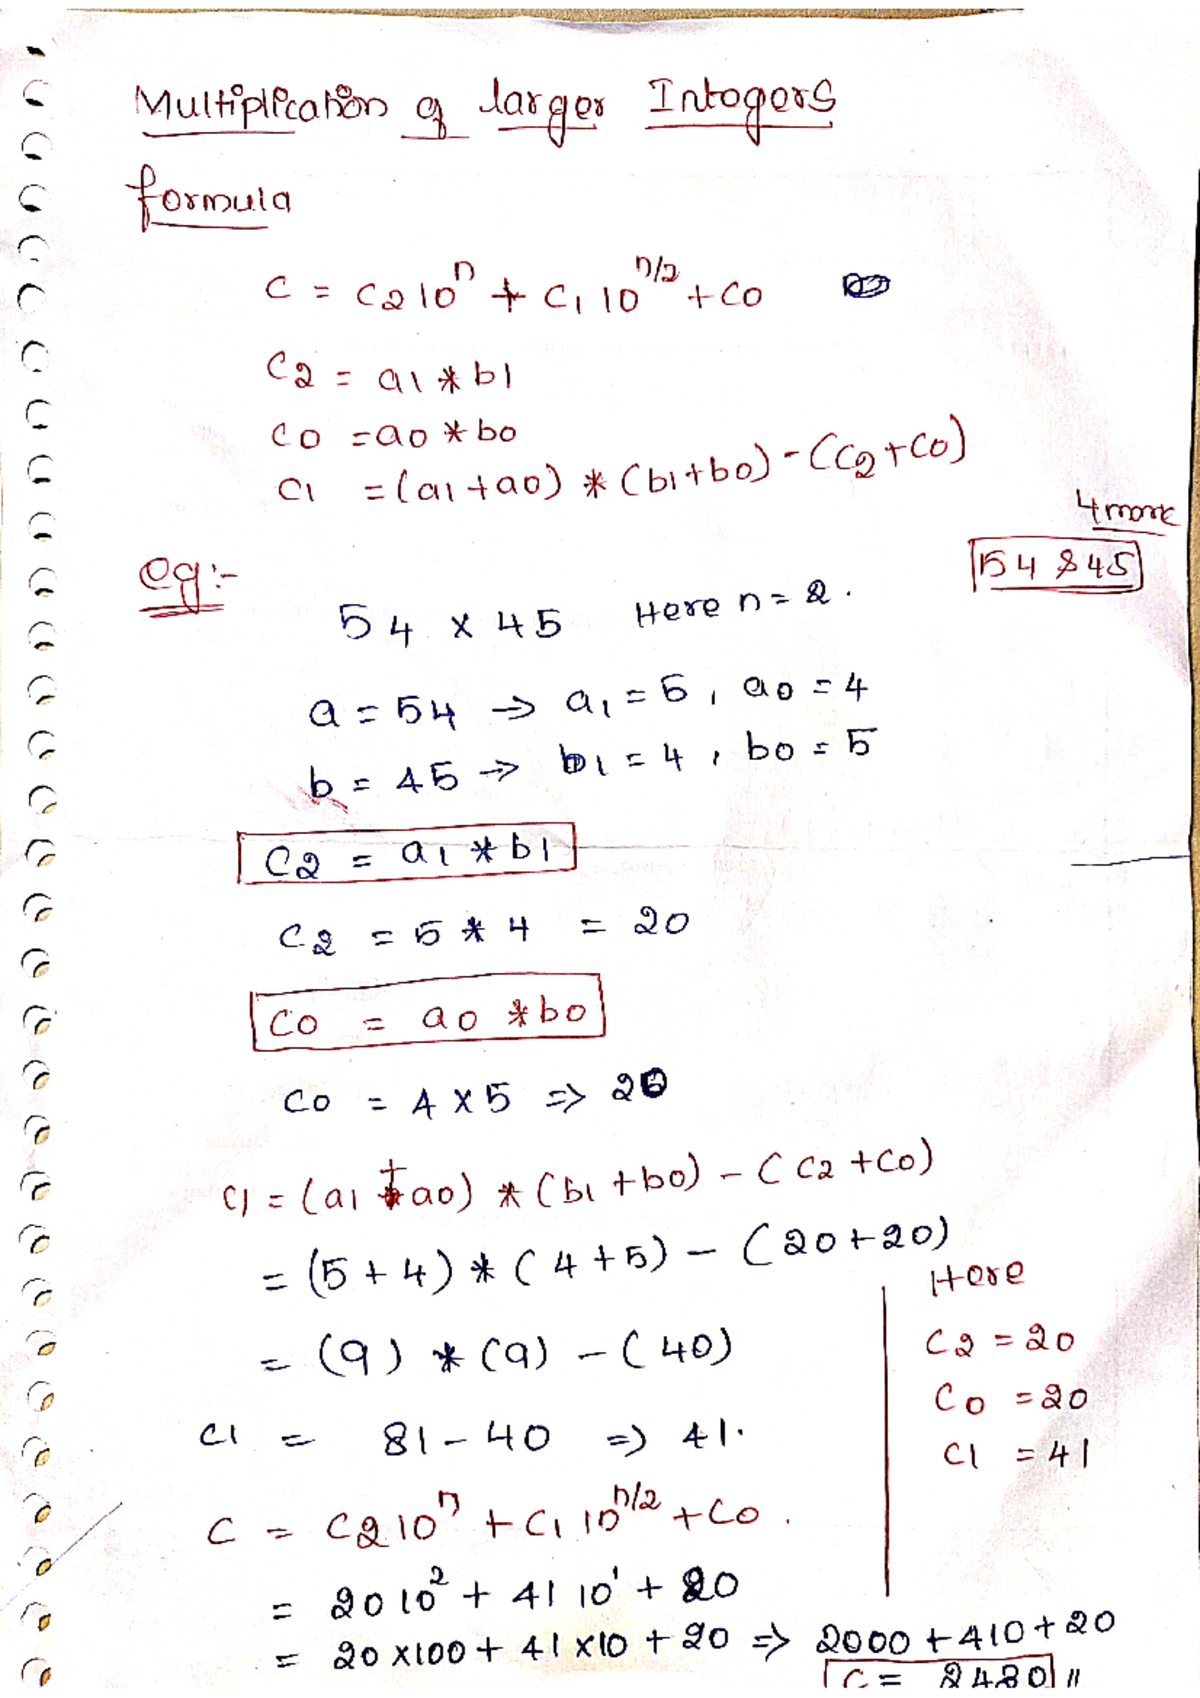 Multiplication of larger Intogers
formula
C = C2 10^n + C1 10^n/2 + C0
C2 = a1 * b1
C0 = a0 * b0
C1 = (a1 + a0) * (b1 + b0) - (C2 + C0)
4 mark
54 & 45
eg:-
54 x 45 Here n = 2.
a = 54 → a1 = 5, a0 = 4
b = 45 → b1 = 4, b0 = 5
C2 = a1 * b1
C2 = 5 * 4 = 20
C0 = a0 * b0
C0 = 4 x 5 => 20
C1 = (a1 + a0) * (b1 + b0) - (C2 + C0)
= (5 + 4) * (4 + 5) - (20 + 20)
= (9) * (9) - (40)
C1 = 81 - 40 => 41.
Here
C2 = 20
C0 = 20
C1 = 41
C = C2 10^n + C1 10^n/2 + C0.
= 20 10^2 + 41 10^1 + 20
= 20 x 100 + 41 x 10 + 20 => 2000 + 410 + 20
C = 2430 //